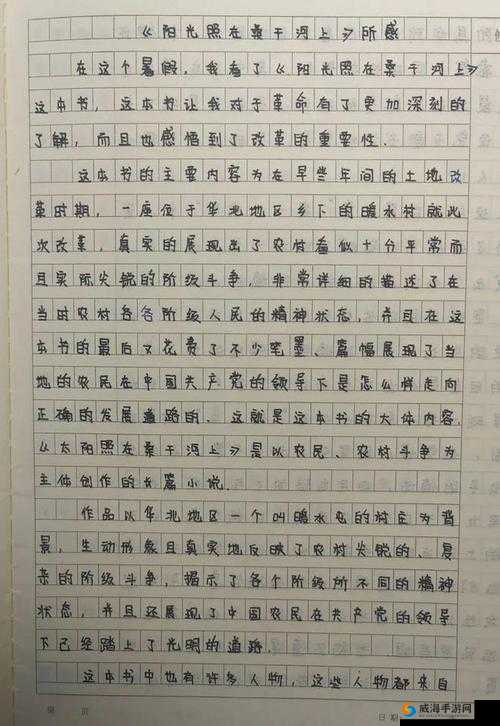 《阳光照在桑干河上》所感
在这个暑假,我看了《阳光照在桑干河上》
这本书,这本书让我对于革命有了更加深刻的
了解,而且也感悟到了改革的重要性.
这本书的主要内容为在早些年间的土地改
革时期,一座位于华北地区乡下的暖水村就此
次改革,真实的展现出了农村看似十分平常而
且实际尖锐的阶级斗争,非常详细的描述了在
当时农村各各阶级人民的精神状态,并且在这
本书的最后又花费了不少笔墨、篇幅展现了当
地的农民在中国共产党的领导下是怎么样走向
正确的发展道路的.这就是这本书的大体内容.
《太阳照在桑干河上》是以农民、农村斗争为
主体创作的长篇小说.
作品以华北地区一个叫暖水屯的村庄为背
景,生动形象且真实地反映了农村尖锐的、复
杂的阶级斗争,揭示了各个阶级所不同的精神
状态,并且还展现了中国农民在共产党的领导
下已经踏上了光明的道路.
这本书中也有许多人物,这些人物都来自
第 页
日期
威海手游网